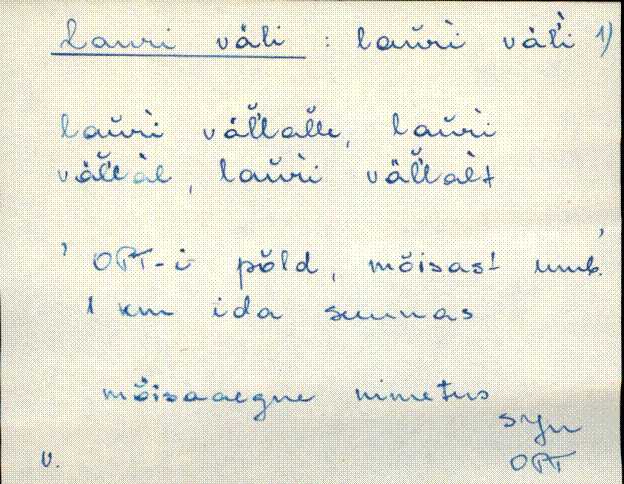 Lauri väli : lau̬ri̬ väl'i 1)
lau̬ri̬ väl̆l'alle, lau̬ri̬
väl̆l'al, lau̬ri̬ väl̆l'alt
' OPT-i põld, mõisast umb.'
1 km ida suunas
mõisaaegne nimetus
syn
v. OPT